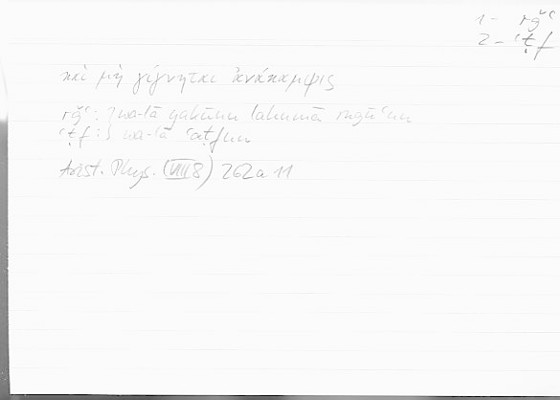 1- rǧʿ
2-ʿṭf
καὶ μὴ γίγνηται ἀνάκαμψις
rǧʿ: } wa-lā yakūnu lahumā ruǧūʿun
ʿṭf: } wa-lā ʿaṭfun
Arist. Phys. (VIII 8) 262a 11